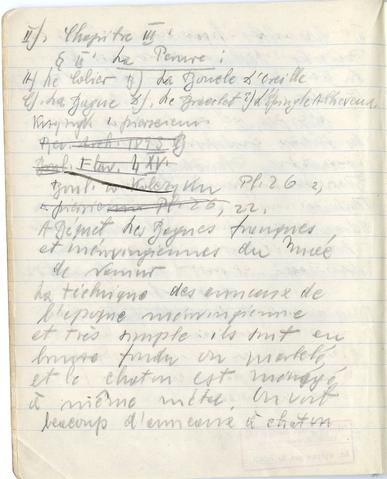 II). Chapitre III:
§ II La Parure:
A) Le Colier B) La Boucle d'oreille
C). La Bague D). Le Bracelet E) L'Épingle à cheveux
Pl. 26
Pl. 26, 22.
A Bequet les Bagues franques,
et mérovingiennes du Musée
de Namur
La technique des anneaux de
l'époque mérovingienne
et très simple: ils sont en
bronze fondu ou martelé
et le chaton est menagé
à même métal. On voit
beaucoup d'anneaux à chaton